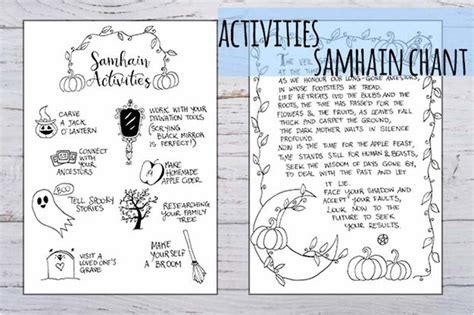 ACTIVITIES
SAMHAIN CHANT
Samhain
Activities
CARVE
A JACK
O' LANTERN
WORK WITH YOUR
DIVINATION TOOLS
(SCRYING
BLACK MIRROR
IS PERFECT!)
CONNECT
WITH YOUR
ANCESTORS
MAKE
HOMEMADE
APPLE CIDER
BOO
TELL SPOOKY
STORIES
RESEARCHING
YOUR FAMILY
TREE
VISIT A
LOVED ONE'S
GRAVE
MAKE
YOURSELF
A BROOM
THE VEIL
AS WE HONOUR OUR LONG-GONE ANCESTORS,
IN WHOSE FOOTSTEPS WE TREAD.
LIFE RETREATS INTO THE BULBS AND THE
ROOTS, THE TIME HAS PASSED FOR THE
FLOWERS & THE FRUITS, AS LEAVES FALL
THICK AND CARPET THE GROUND,
THE DARK MOTHER WAITS IN SILENCE
PROFOUND.
NOW IS THE TIME FOR THE APPLE FEAST,
TIME STANDS STILL FOR HUMAN & BEASTS,
SEEK THE WISDOM OF DAYS GONE BY,
TO DEAL WITH THE PAST AND LET
IT LIE.
FACE YOUR SHADOW AND
ACCEPT YOUR FAULTS,
LOOK NOW TO THE
FUTURE TO SEEK
YOUR RESULTS.